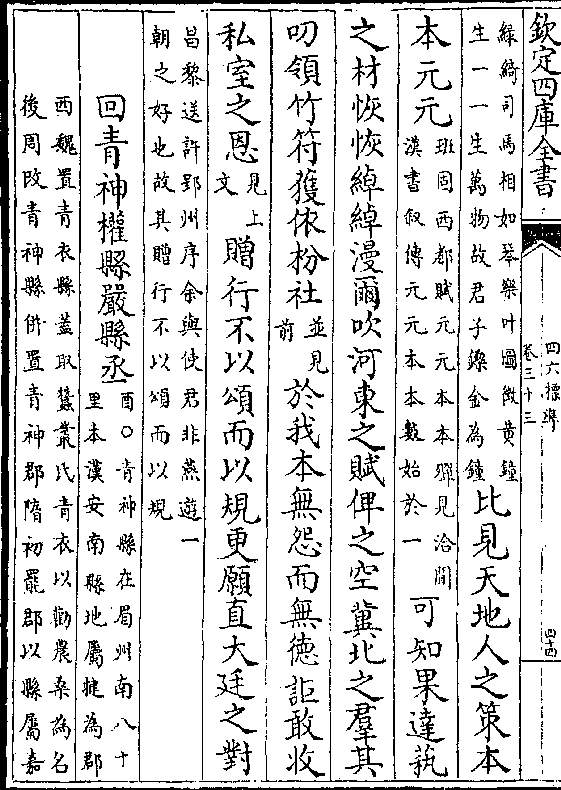 欽定四庫全書
四六標準
卷三十三
四十四
綠綺司馬相如琴樂叶圖徵黄鐘
生一一生萬物故君子鑠金為鐘
比見天地人之策本
本元元
班固西都賦元元本本殫見洽聞
漢書叙傳元元本本數始於一
可知果達執
之材恢恢綽綽漫爾吹河東之賦俾之空冀北之羣其
叨領竹符獲依枌社
並見
前
於我本無怨而無徳詎敢收
私室之恩
見上
文
贈行不以頌而以規更願直大廷之對
昌黎送許郢州序余與使君非燕遊一
朝之好也故其贈行不以頌而以規
回青神權縣嚴縣丞
酉○青神縣在眉州南八十
里本漢安南縣地屬犍為郡
西魏置青衣縣蓋取蠶叢氏青衣以勸農桑為名
後周改青神縣併置青神郡隋初罷郡以縣屬嘉